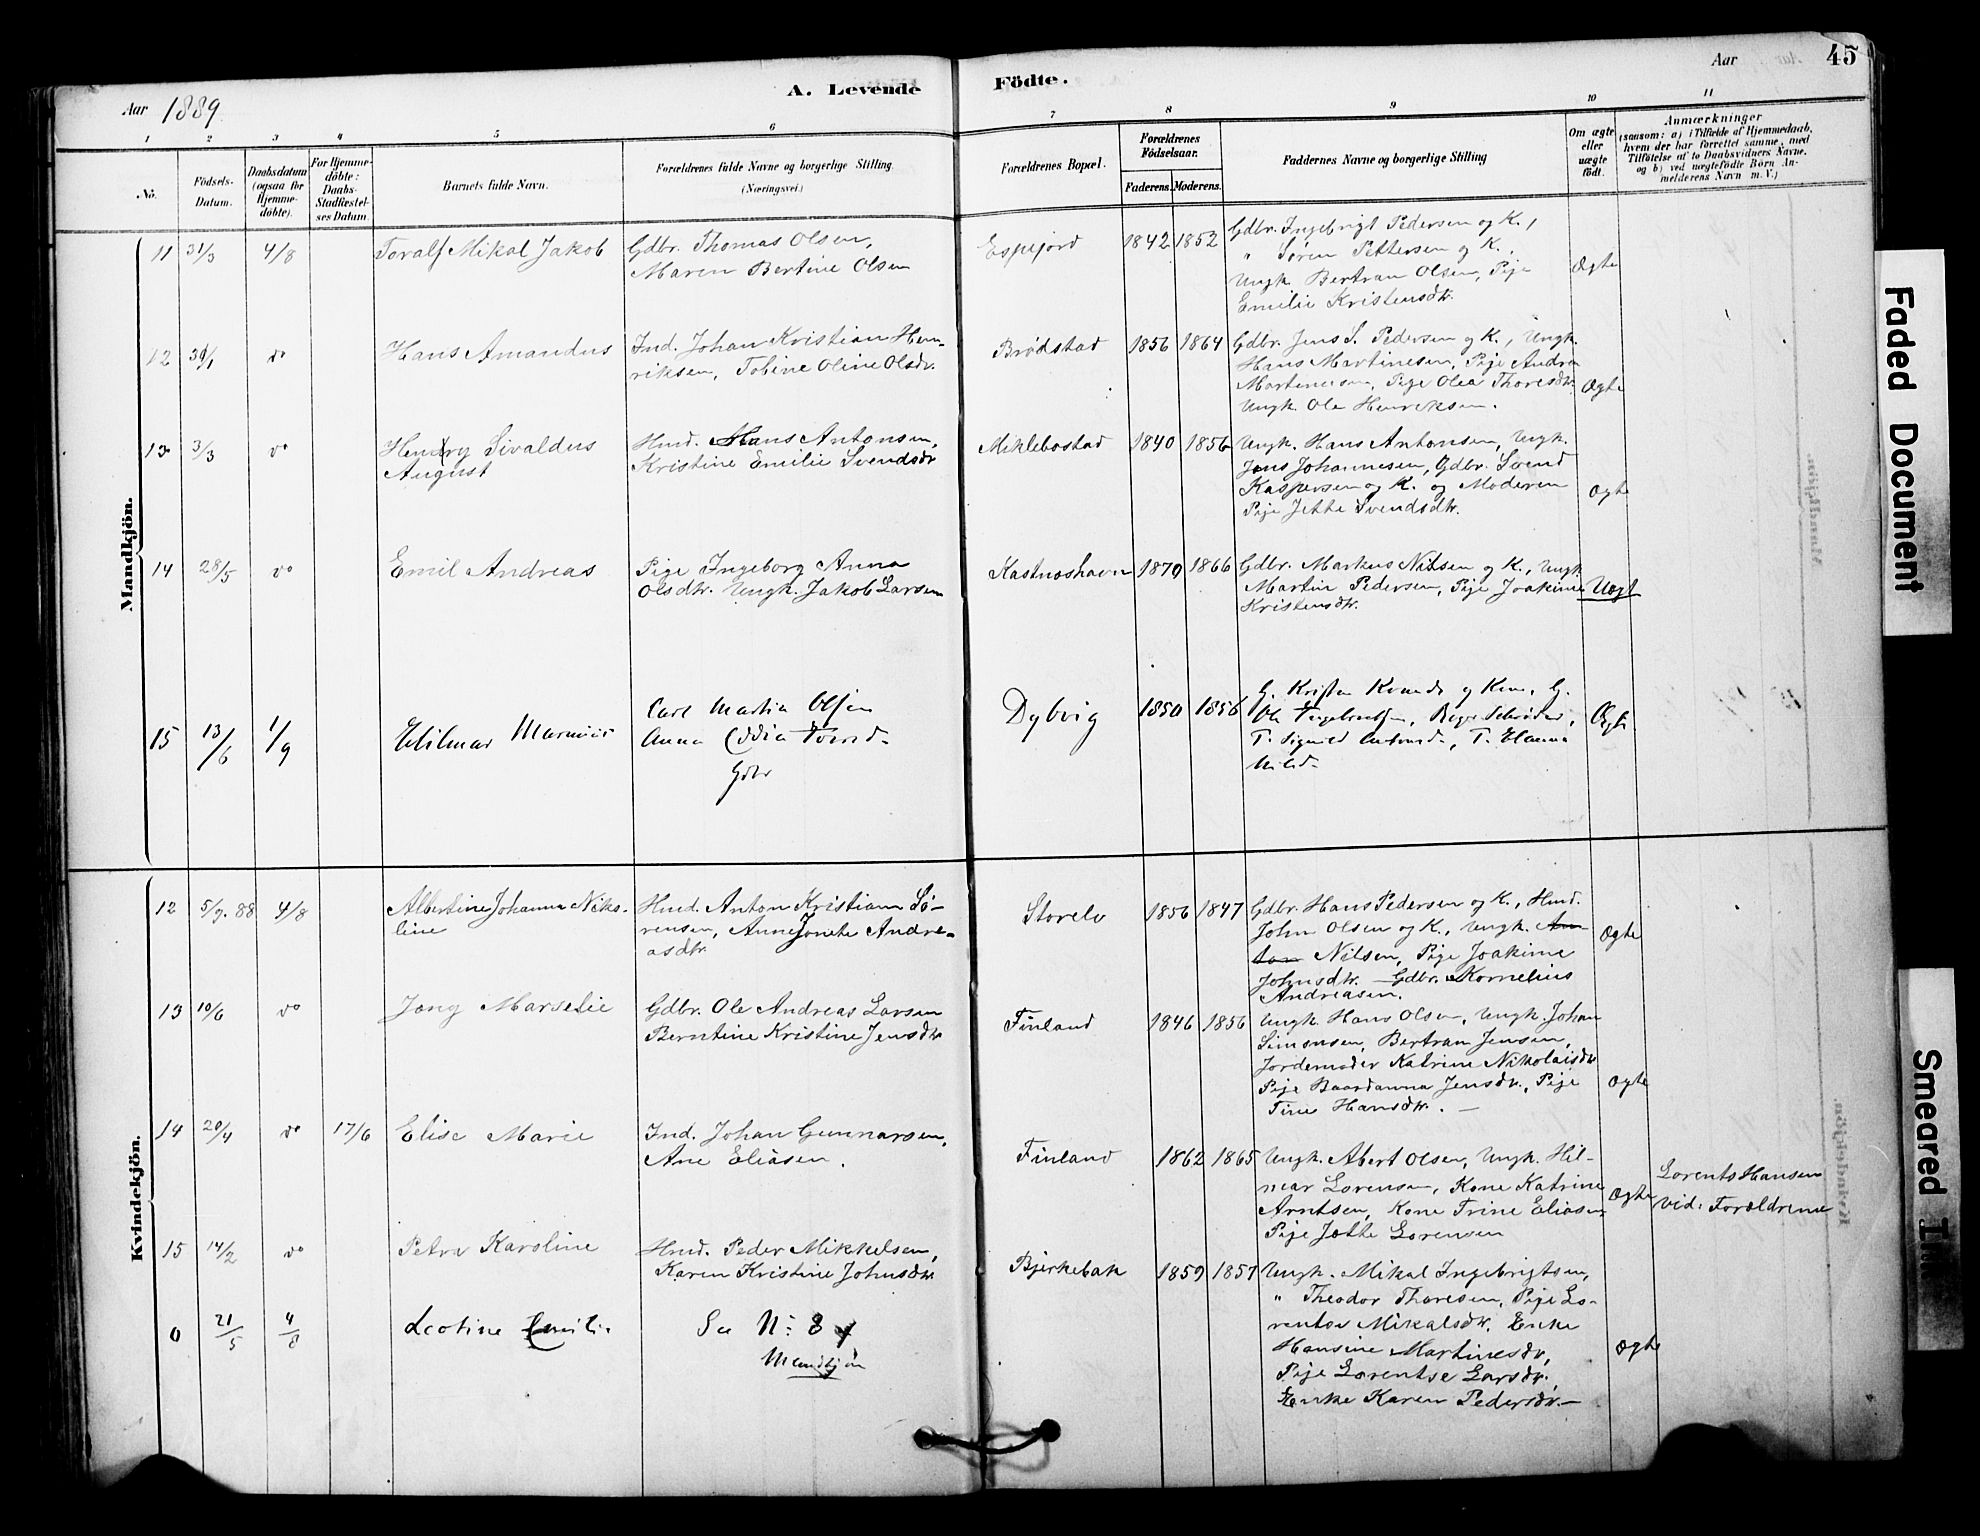 45
Aar 1889
A. Levende
Födte.
Aar
1 2 3 4 5 6 7 8 9 10 11
No.
Födsels-Datum.
Daabsdatum (ogsaa for Hjemme-döbte).
For Hjemme-döbte: Daabs-Stadfæstel-ses Datum.
Barnets fulde Navn.
Forældrenes fulde Navne og borgerlige Stilling (Næringsvei.)
Forældrenes Bopæl.
Forældrenes Födselsaar.
Faderens. Moderens.
Faddernes Navne og borgerlige Stilling
Om ægte eller uægte födt.
Anmærkninger
(saasom: a) i Tilfælde af Hjemmedaab,
hvem der har forrettet samme, med
Tilföielse af to Daabsvidners Navne,
og b) ved uægtefödte Börn An-
melderens Navn m. V.)
Mandkjön.
11 31/3 4/8 Toralf Mikal Jakob
Gdbr. Thomas Olsen,
Maren Bertine Olsen
Espejord 1842 1852
Gdbr. Ingebrigt Pedersen og K.,
" Søren Pettersen og K.,
Ungk. Bertran Olsen, Pige
Emilie Kristensdtr.
Ægte
12 do Hans Amandus
Ind. Johan Kristian Hen-
riksen, Tobine Oline Olsdtr.
Brødstad 1856 1864
Gdbr. Jens S. Pedersen og K., Ungk.
Hans Martinesen, Pige Andrea
Martinesen, Pige Olea Thoresdtr.
Ungk. Ole Henriksen.
Ægte
13 3/3 do Henry Sivaldus
August
Hmd. Hans Antonsen,
Kristine Emilie Svendsdtr
Miklebostad 1840 1856
Ungk. Hans Antonsen, Ungk.
Jens Johannesen, Gdbr. Svend
Kaspersen og K. og Moderen
Pige Jette Svendsdtr.
Ægte
14 28/5 do Emil Andreas
Pige Ingeborg Anna
Olsdtr. Ungk. Jakob Larsen
Kastnoshavn 1870 1866
Gdbr. Markus Nilsen og K., Ungk.
Martin Pedersen, Pige Joakime
Kristensdtr.
Uægt
15 13/6 1/9 Hilmar
Carl Martin Olsen
Anna
Gdbr
Dybvig 1850 1856
G. Kristen
Ægte
Kvindekjön.
12 5/7. 88 4/8 Albertine Johanna Niko-
line
Hmd. Anton Kristian Sø-
rensen, Anne Jonete Andre-
asdtr.
Storelv 1856 1847
Gdbr. Hans Pedersen og K., Hmd.
John Olsen og K., Ungk. An-
ton Nilsen, Pige Joakime
Johnsdtr. – Gdbr. Kornelius
Andreasen.
Ægte
13 10/6 do Jany Marselie
Gdbr. Ole Andreas Larsen
Berntine Kristine Jensdtr
Finland 1846 1856
Ungk. Hans Olsen, Ungk. Johan
Simonsen, Bertram Jensen,
Jordemoder Katrine Nikolaisdtr
Pige Baardanna Jensdtr., Pige
Tine Hansdtr. –
Ægte
14 20/4 do 17/6 Elise Marie
Ind. Johan Gunnarsen,
Ane Eliasen.
Finland 1862 1865
Ungk. Abert Olsen, Ungk. Hil-
mar Lorensen, Kone Katrine
Arntsen, Kone Trine Eliasen
Pige Jette Lorensen
Ægte
Lorents Hansen
Vid: Forældrene
15 14/2 do Petra Karoline
Hmd. Peder Mikkelsen,
Karen Kristine Johnsdtr
Bjerkebak 1859 1857
Ungk. Mikal Ingebrigtsen,
" Theodor Thoresen, Pige Lo-
rentse Mikalsdtr. Enke
Hansine Martinesdtr,
Pige Lorentse Larsdtr.,
Enke Karen Pedersdtr. –
Ægte
0 21/5 4/8 Leotine Emilie
Se No 8
Mandkjön
Faded Document
Smeared Ink